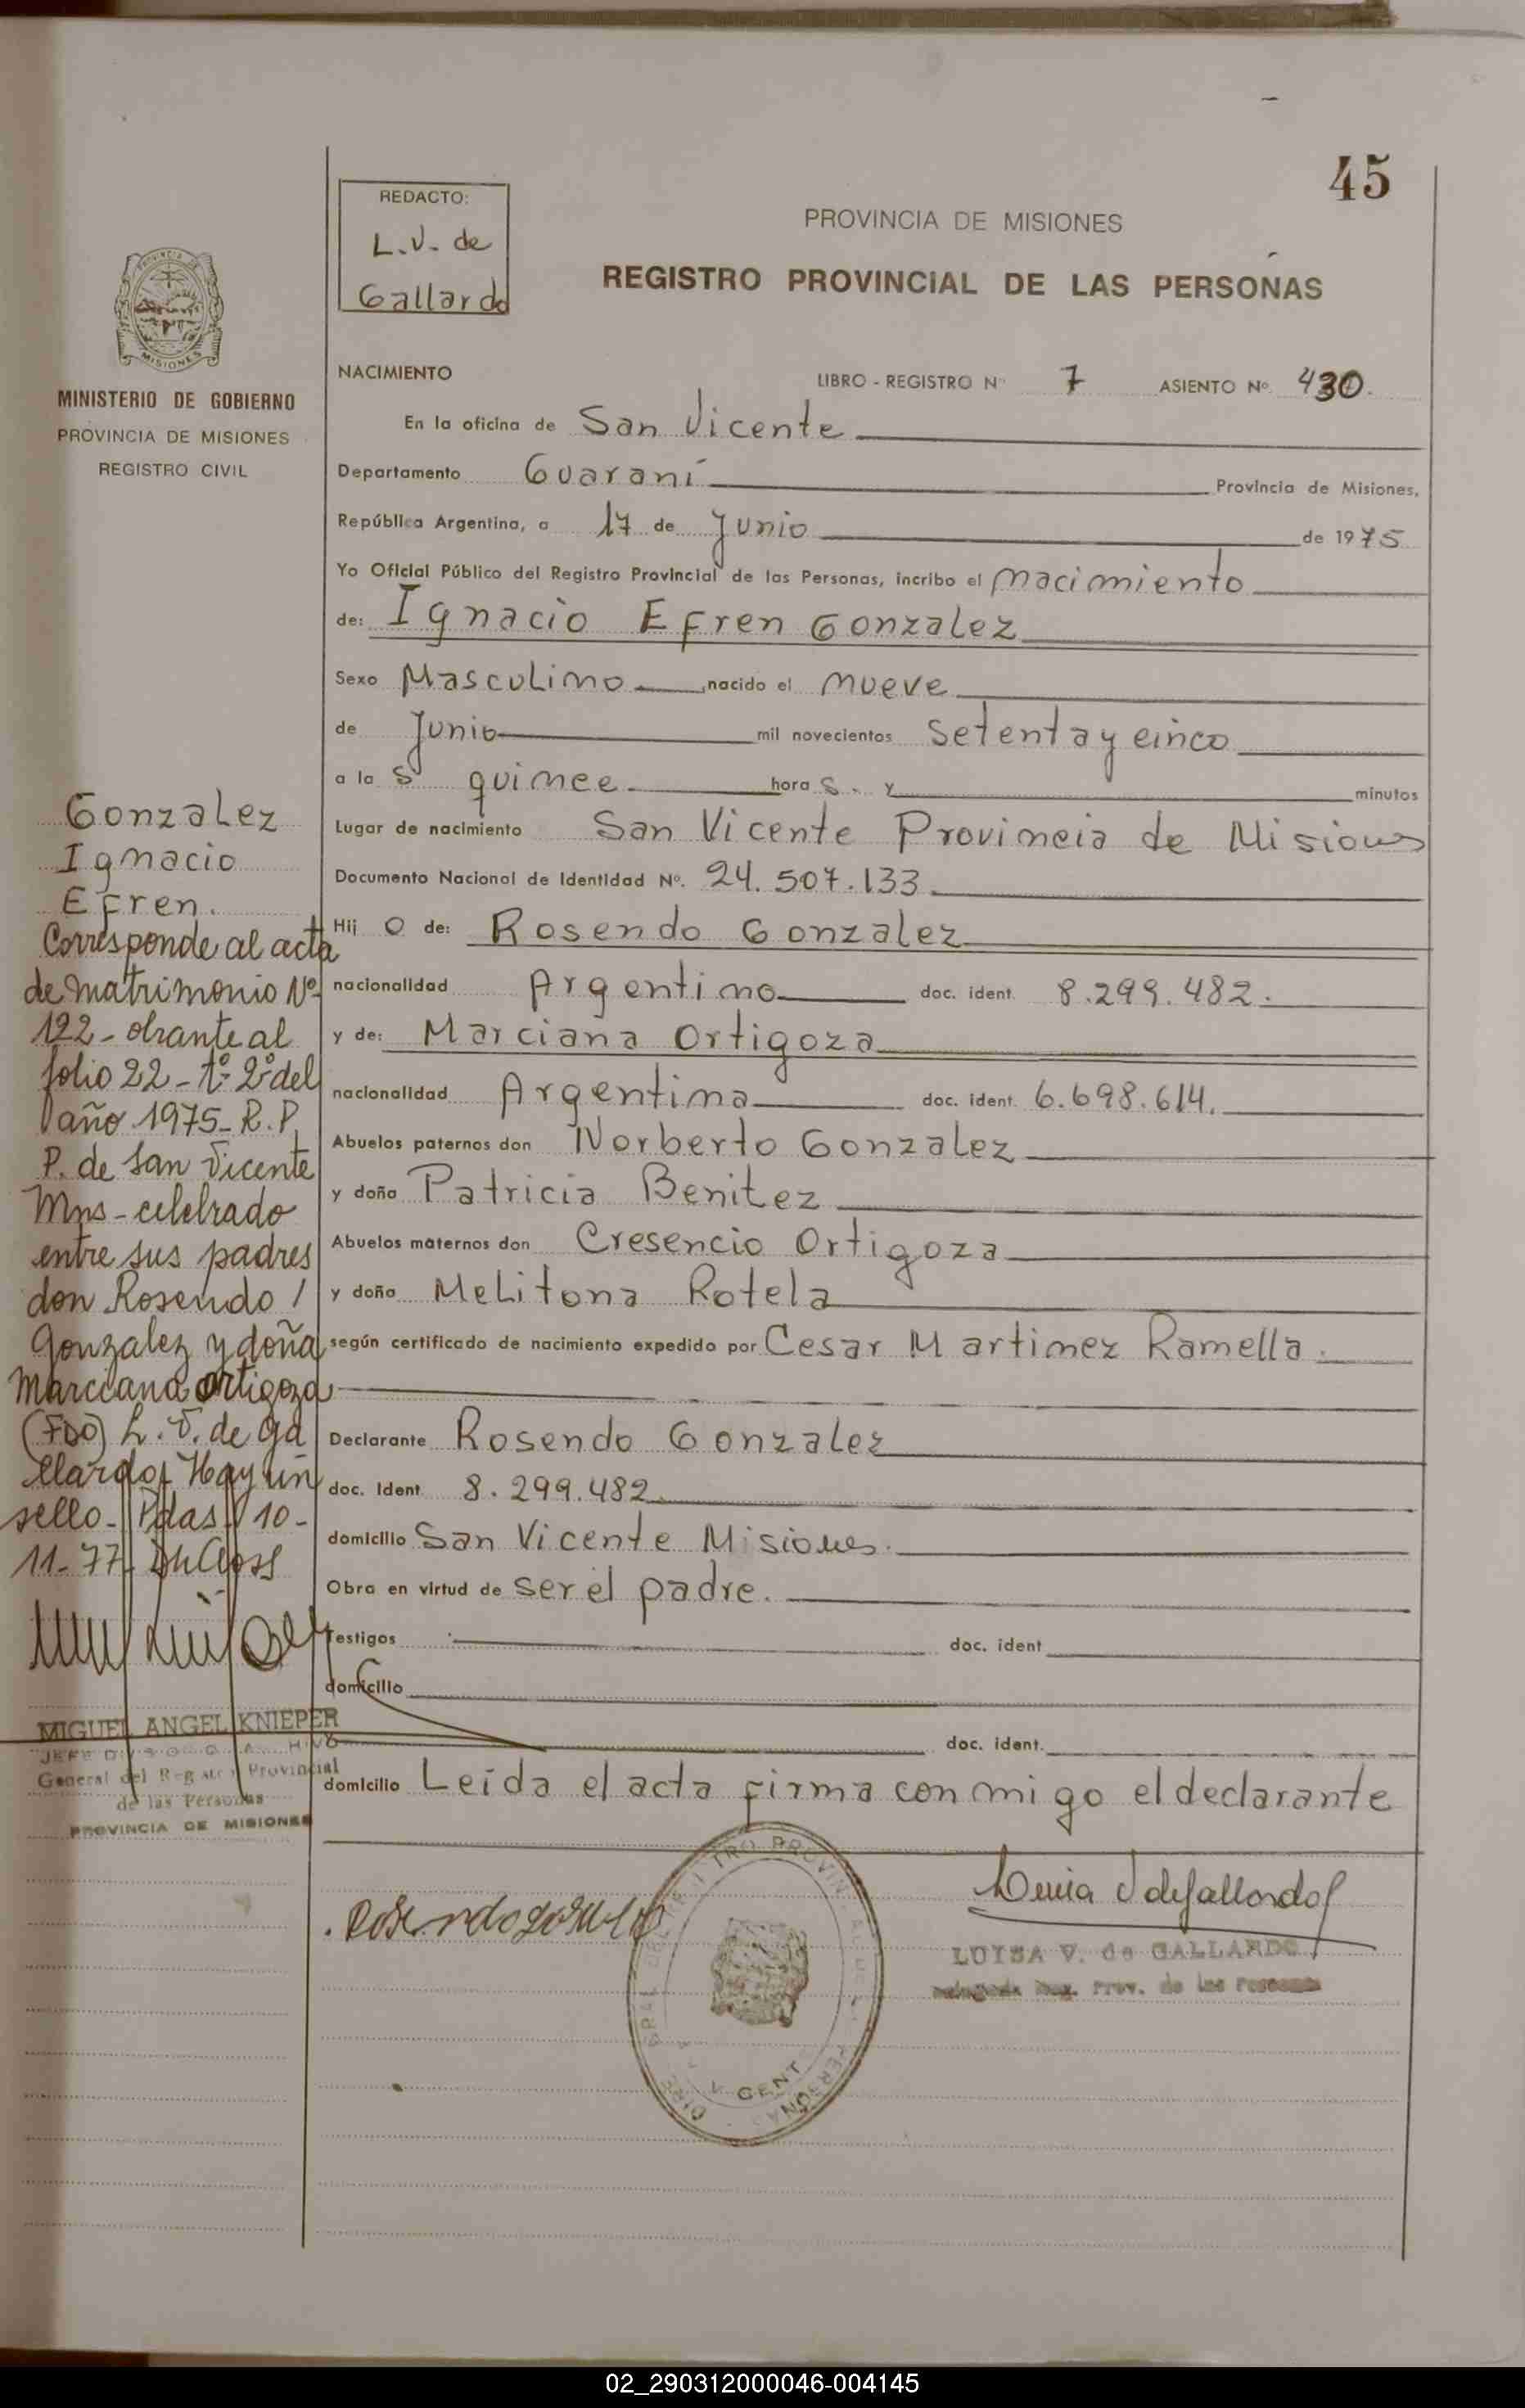 45
REDACTO:
L.V. de
Gallardo
PROVINCIA DE MISIONES
REGISTRO PROVINCIAL DE LAS PERSONAS
MISIONES
MINISTERIO DE GOBIERNO
PROVINCIA DE MISIONES
REGISTRO CIVIL
NACIMIENTO LIBRO - REGISTRO Nº 7 ASIENTO Nº 430.
En la oficina de San Vicente
Departamento Guaraní Provincia de Misiones,
República Argentina, a 17 de Junio de 1975
Yo Oficial Público del Registro Provincial de las Personas, incribo el nacimiento
de: Ignacio Efren Gonzalez
Sexo Masculino nacido el nueve
de Junio mil novecientos setenta y cinco
a la s quince hora s. y minutos
Lugar de nacimiento San Vicente Provincia de Misiones
Documento Nacional de Identidad Nº. 24.507.133
Hij o de: Rosendo Gonzalez
nacionalidad Argentino doc. ident. 8.299.482.
y de: Marciana Ortigoza
nacionalidad Argentina doc. ident. 6.698.614.
Abuelos paternos don Norberto Gonzalez
y doña Patricia Benitez
Abuelos maternos don Cresencio Ortigoza
y doña Melitona Rotela
según certificado de nacimiento expedido por Cesar Martinez Ramella.
Declarante Rosendo Gonzalez
doc. Ident. 8.299.482
domicilio San Vicente Misiones.
Obra en virtud de ser el padre.
Testigos doc. ident.
domicilio
doc. ident.
domicilio Leida el acta firma con migo el declarante
Gonzalez
Ignacio
Efren.
Corresponde al acta
de matrimonio Nº
122 - obrante al
folio 22 - tº 2º del
año 1975 - R. P.
P. de San Vicente
Mns - celebrado
entre sus padres
don Rosendo /
Gonzalez y doña
Marciana Ortigoza
(FDO) L. V. de Ga
llardo, Hay un
sello - Pdas 10 -
11-77
MIGUEL ANGEL KNIEPER
General del Registro Provincial
de las Personas
PROVINCIA DE MISIONES
LUISA V. de GALLARDO
Delegada Reg. Prov. de las Personas
02_290312000046-004145